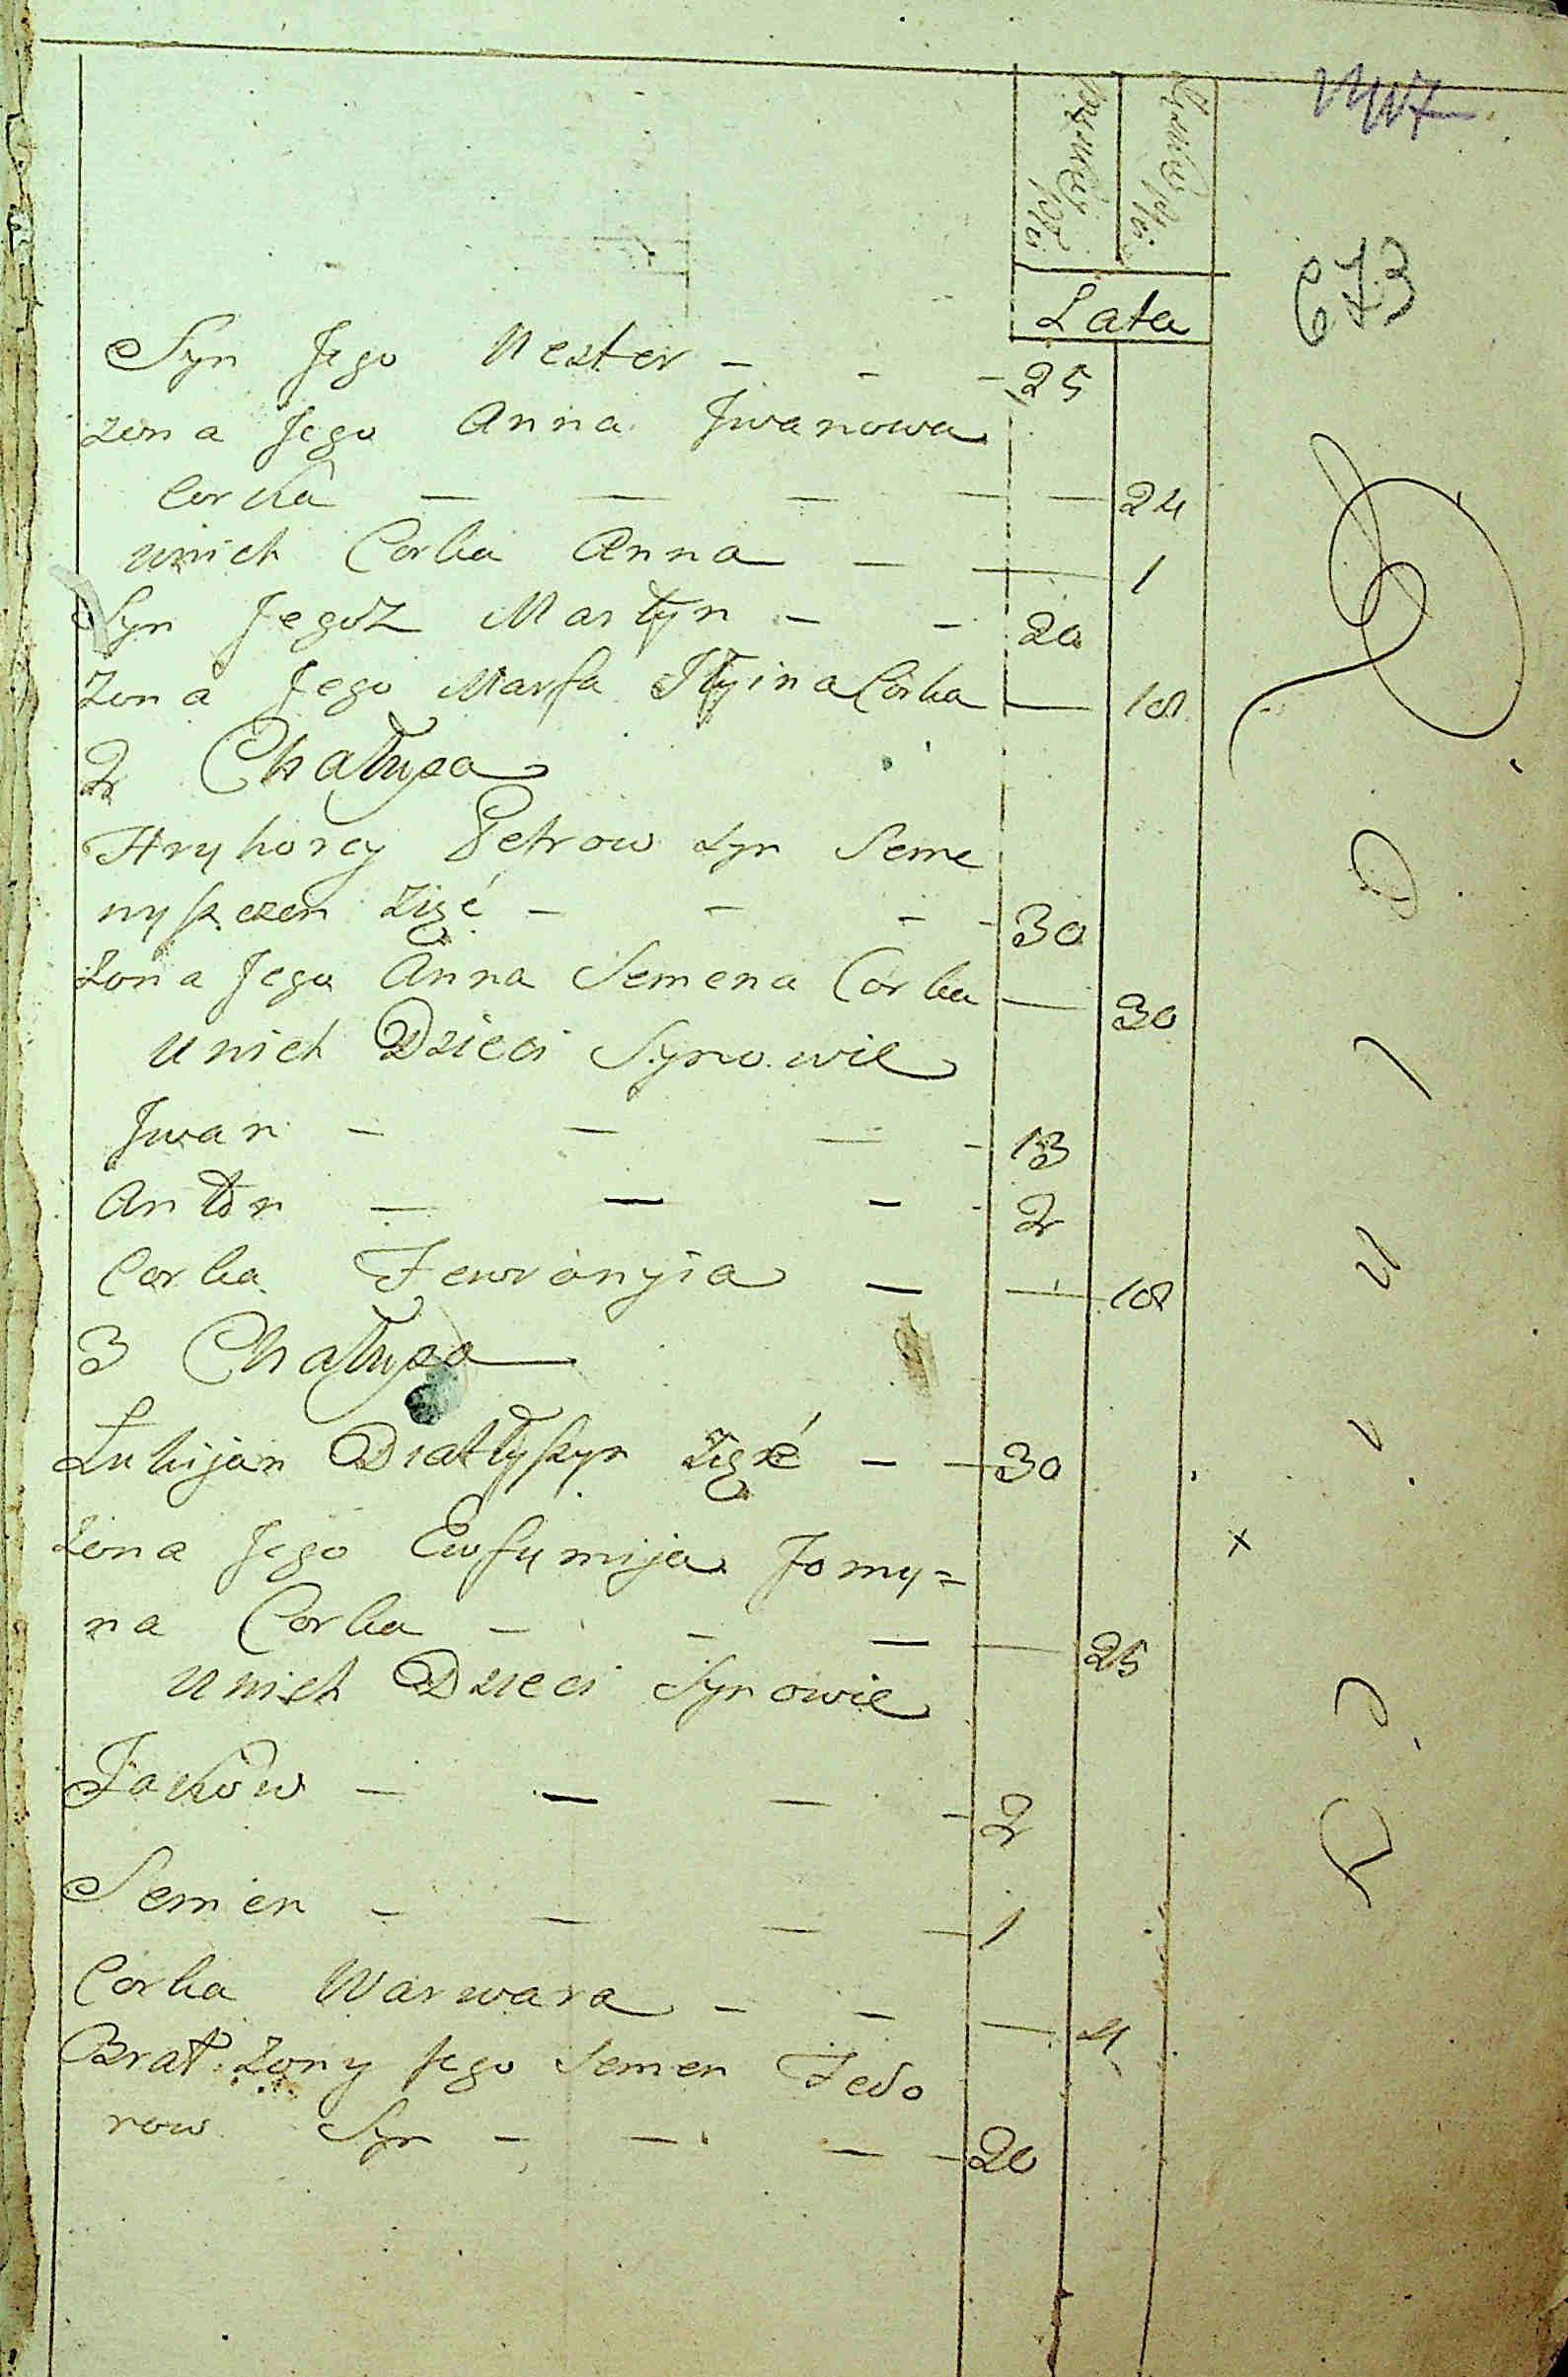 673
Męskiej Płci
Żeńskiej Płci
Lata
Syn Jego Nester - - - 25
żona Jego Anna Jwanowa
Corka — — — — — 24
unich Corka Anna — — 1
Syn Jegoż Martyn - - 20
żona Jego Marfa Iłyina Corka — 18
2 Chałupa
Hryhorey Petrow syn Seme
nyszczen Zięć - - - - 30
żona Jego Anna Semena Corka — 30
unich Dzieci Synowie
Jwan - — — - 13
Anton — — - - 2
Corka Fewronyia — — 10
3 Chałupa
Łukijan Zięć — — 30
żona Jego Eufymija Fomy=
na Corka - - — — 25
unich Dzieci Synowie
Jakow — — — - 2
Semen - — — — 1
Corka Warwara - — — 4
Brat żony Jego Semen Fedo
row Syn - — — - 20